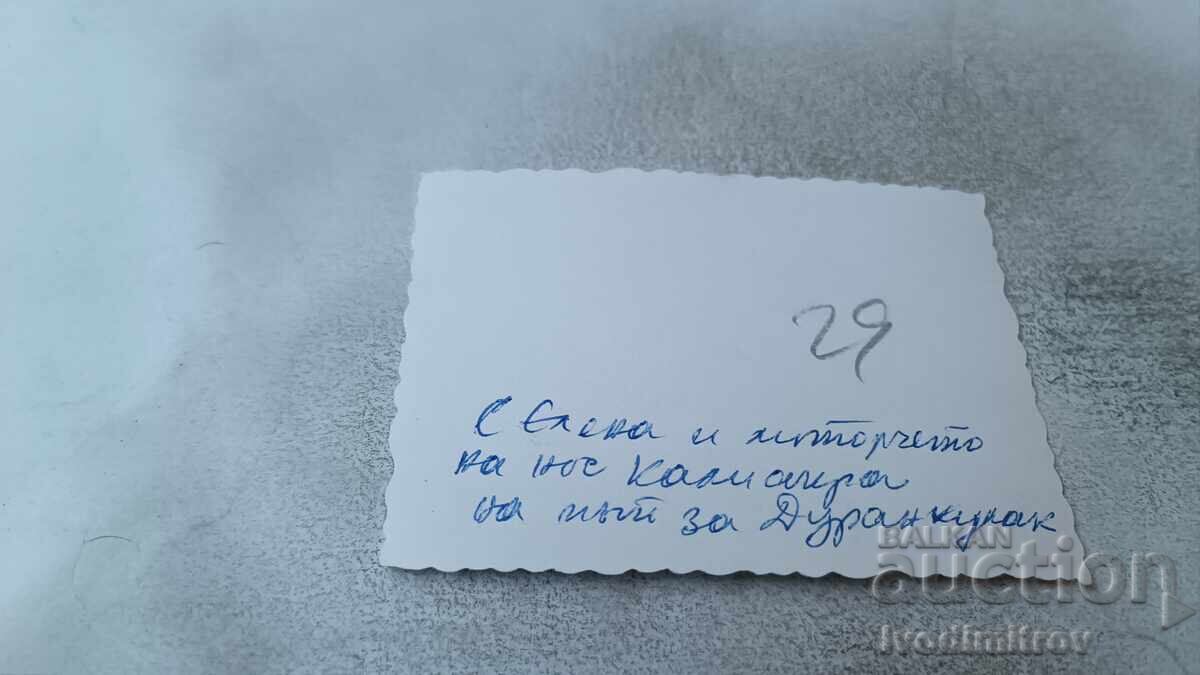 29
С Елена и моторчето
на нос Калиакра
на път за Дуранкулак
BALKAN
auction
ivodimitrov